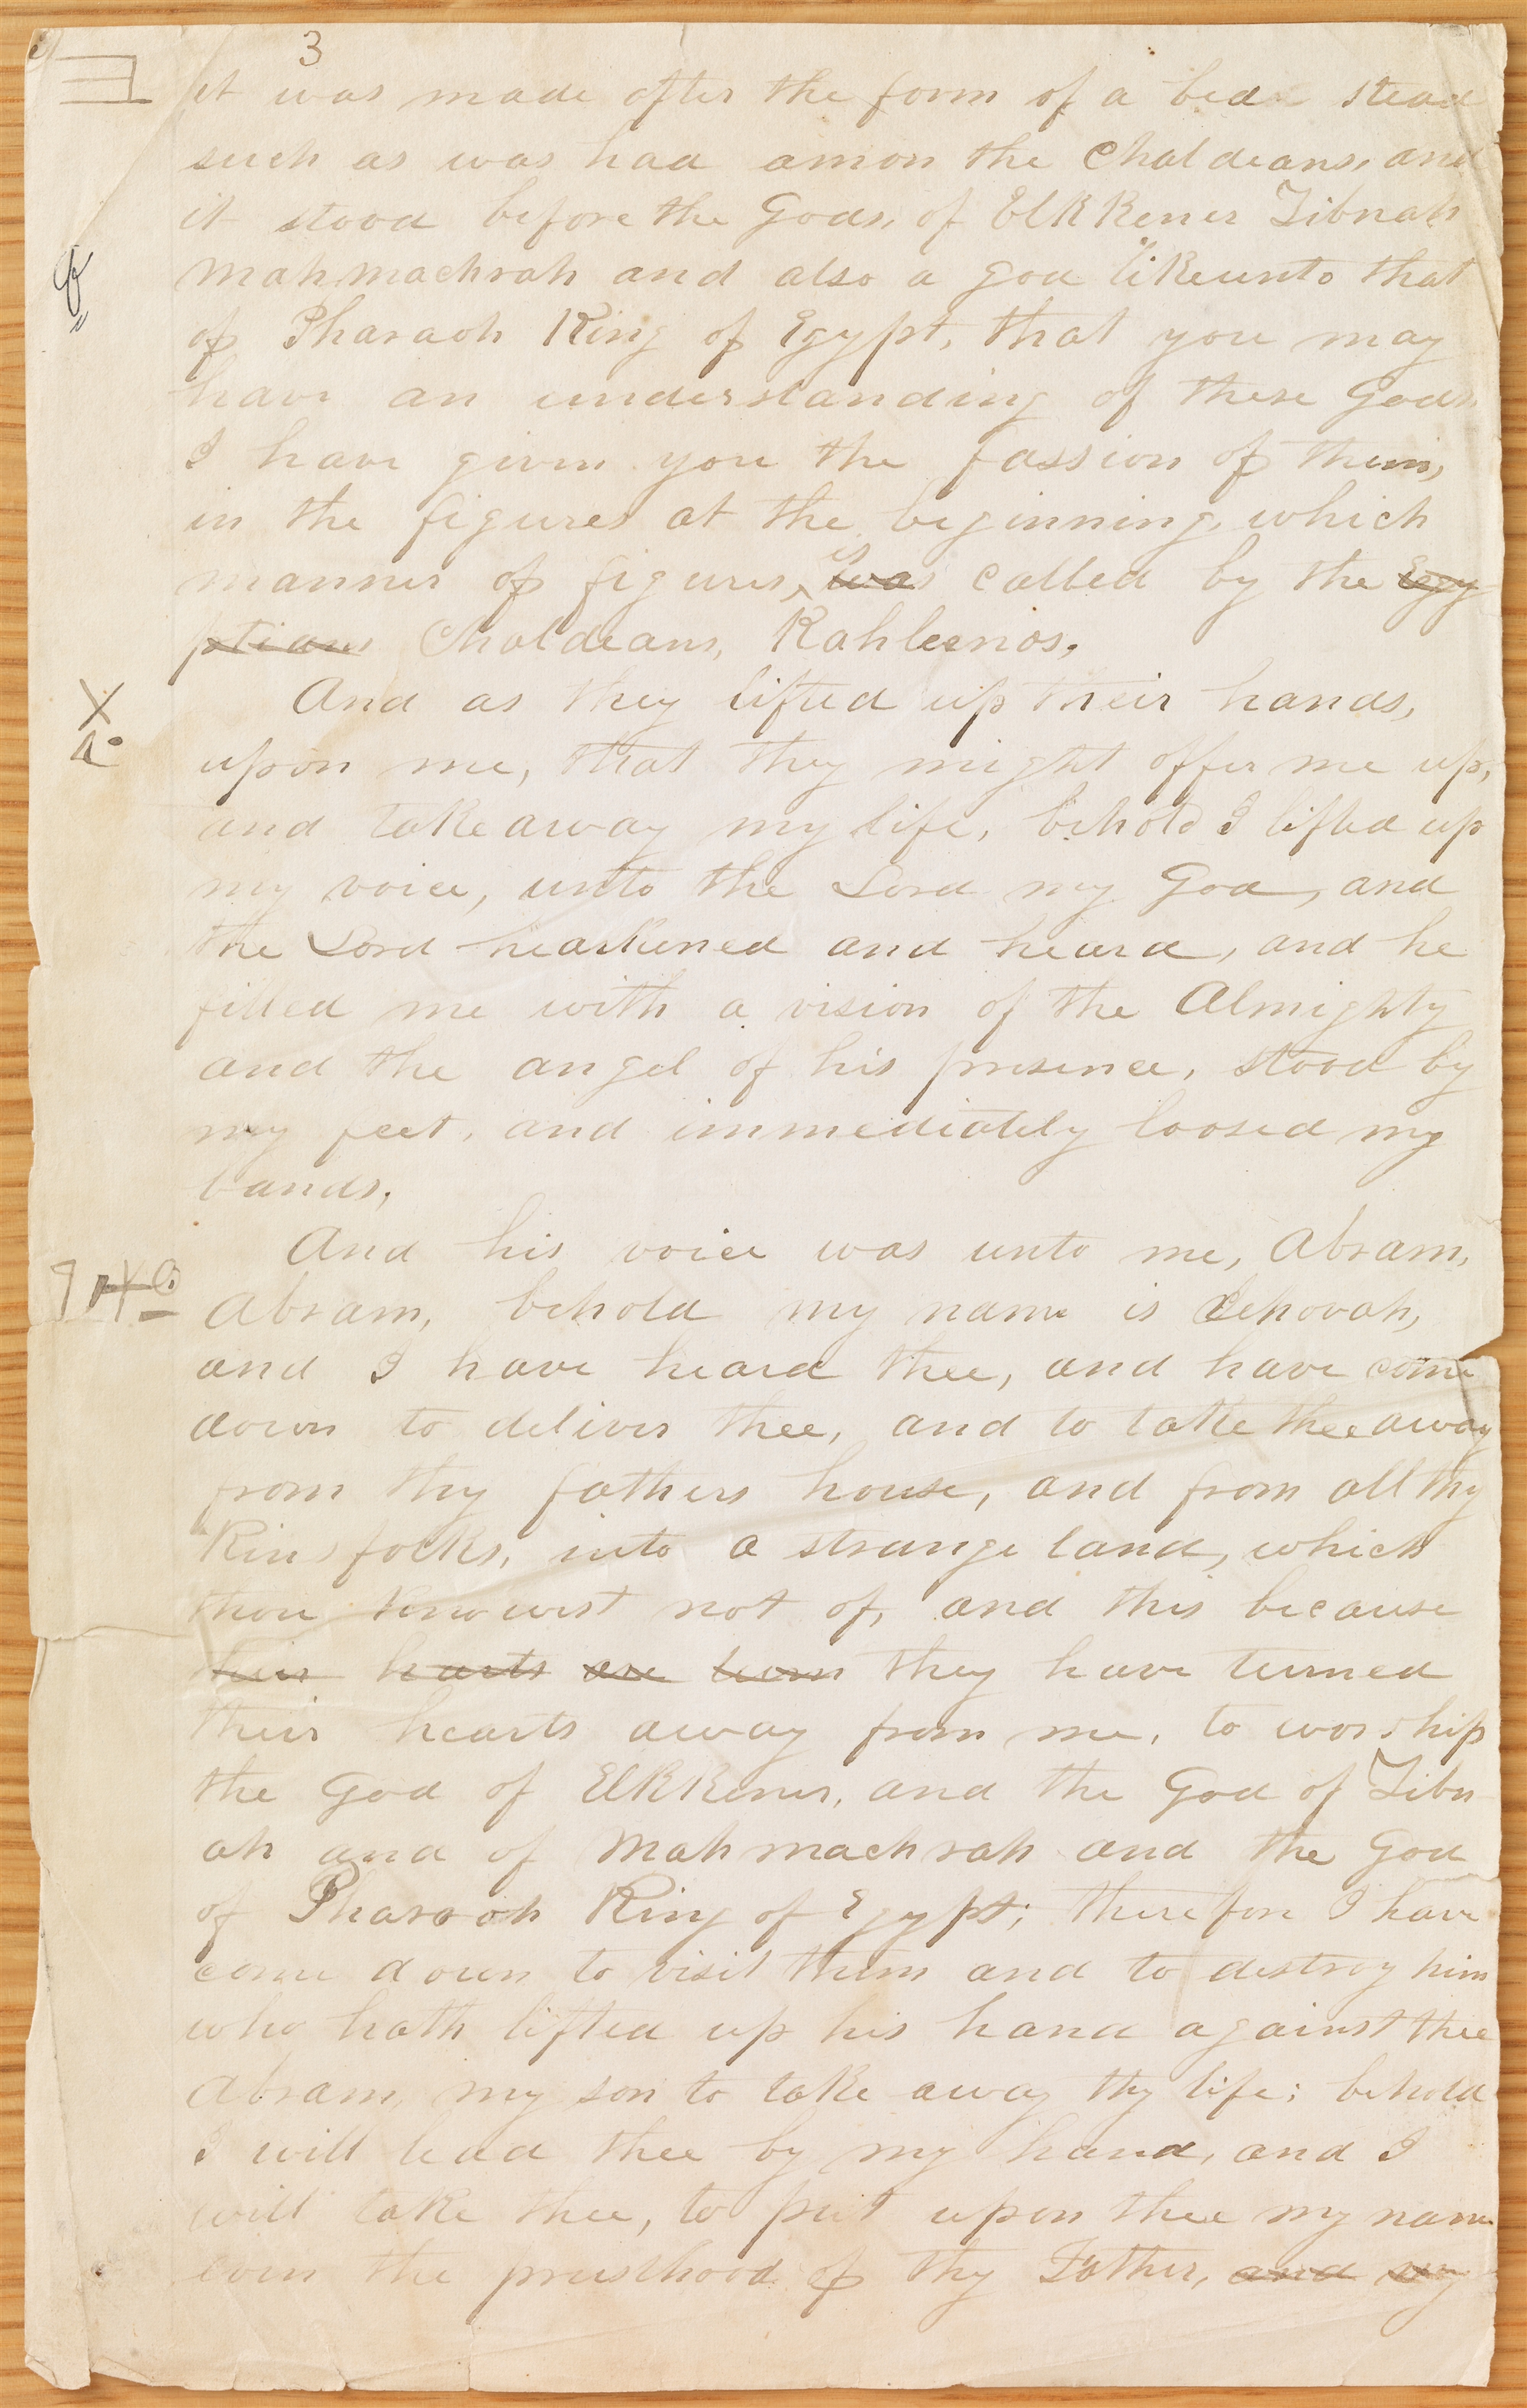 3
it was made after the form of a bed stead
such as was had amon the Chaldeans, and
it stood before the Gods, of Elkkener Zibnah
Mahmachrah and also a god likeunto that
of Pharaoh King of Egypt, that you may
have an understanding of these Gods
I have given you the fassion of them,
in the figures at the beginning, which
manner of figures, is was called by the Egy
ptians Chaldeans, Kahleenos,
And as they lifted up their hands,
upon me, that they might offer me up,
and take away my life, behold I lifted up
my voice, unto the Lord my God, and
the Lord hearkened and heard, and he
filled me with a vision of the Almighty
and the angel of his presence, stood by
my feet, and immediately loosed my
bands,
And his voice was unto me, Abram,
Abram, behold my name is Jehovah,
and I have heard thee, and have come
down to deliver thee, and to take thee away
from thy fathers house, and from all thy
Kinsfolks, into a strange land, which
thou knowest not of, and this because
their hearts are turn they have turned
their hearts away from me, to worship
the God of Elkkener, and the God of Zibn
ah and of Mahmachrah and the God
of Pharaoh King of Egypt; therefore I have
come down to visit them and to destroy him
who hath lifted up his hand against thee
Abram, my son to take away thy life; behold
I will lead thee by my hand, and I
will take thee, to put upon thee my name
even the priesthood of thy Father, and my